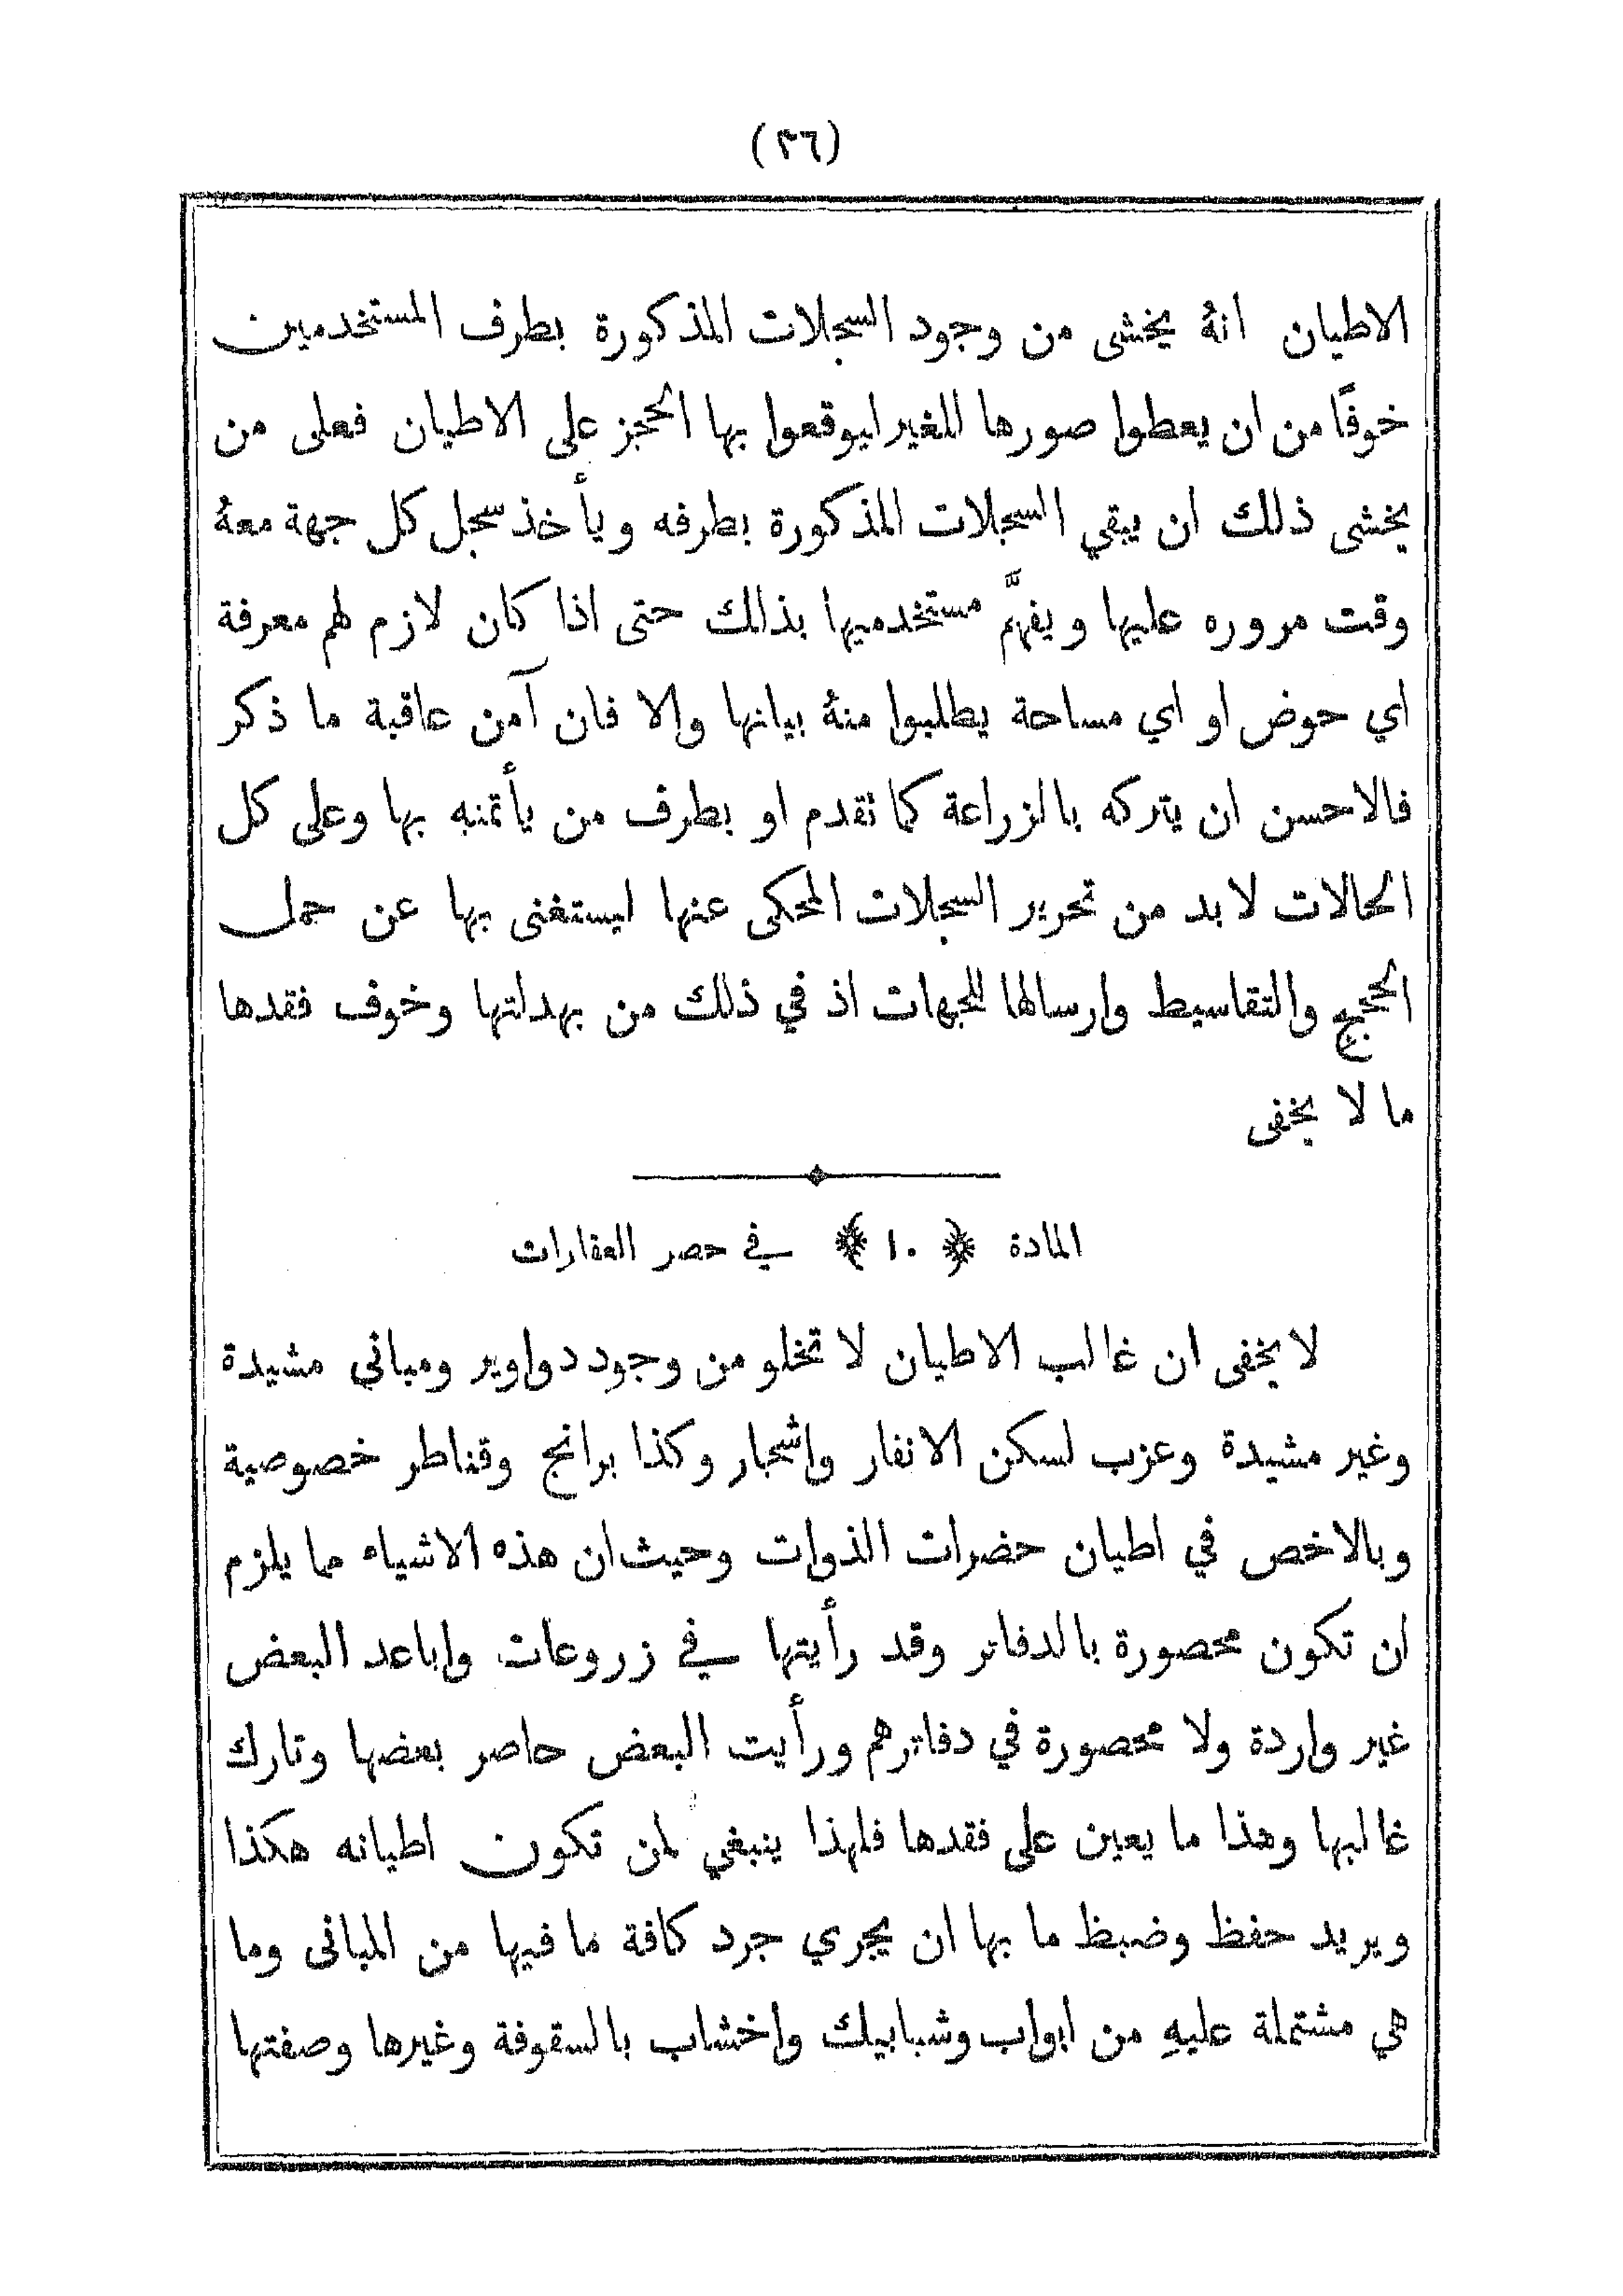 (٣٦)
الاطيان انهُ يخشى من وجود السجلات المذكورة بطرف المستخدمين
خوفًا من ان يعطوا صورها للغير ليوقعوا بها الحجز على الاطيان فعلى من
يخشى ذلك ان يبقي السجلات المذكورة بطرفه ويأخذ سجل كل جهة معهُ
وقت مروره عليها ويفهَّم مستخدميها بذلك حتى اذا كان لازم لهم معرفة
اي حوض او اي مساحة يطلبوا منهُ بيانها والا فان آمن عاقبة ما ذكر
فالاحسن ان يتركه بالزراعة كما تقدم او بطرف من يأتمنه بها وعلى كل
الحالات لا بد من تحرير السجلات المحكى عنها ليستغنى بها عن حمل
الحجج والتقاسيط وارسالها للجهات اذ في ذلك من بهدلتها وخوف فقدها
ما لا يخفى
المادة ﴿ ١٠ ﴾ في حصر العقارات
لا يخفى ان غالب الاطيان لا تخلو من وجود دواوير ومباني مشيدة
وغير مشيدة وعزب لسكن الانفار واشجار وكذا برانج وقناطر خصوصية
وبالاخص في اطيان حضرات الذوات وحيث ان هذه الاشياء مما يلزم
ان تكون محصورة بالدفاتر وقد رأيتها في زروعات واباعد البعض
غير واردة ولا محصورة في دفاترهم ورأيت البعض حاصر بعضها وتارك
غالبها وهذا ما يعين على فقدها فلهذا ينبغي لمن تكون اطيانه هكذا
ويريد حفظ وضبط ما بها ان يجري جرد كافة ما فيها من المبانى وما
هي مشتملة عليهِ من ابواب وشبابيك واخشاب بالسقوفة وغيرها وصفتها